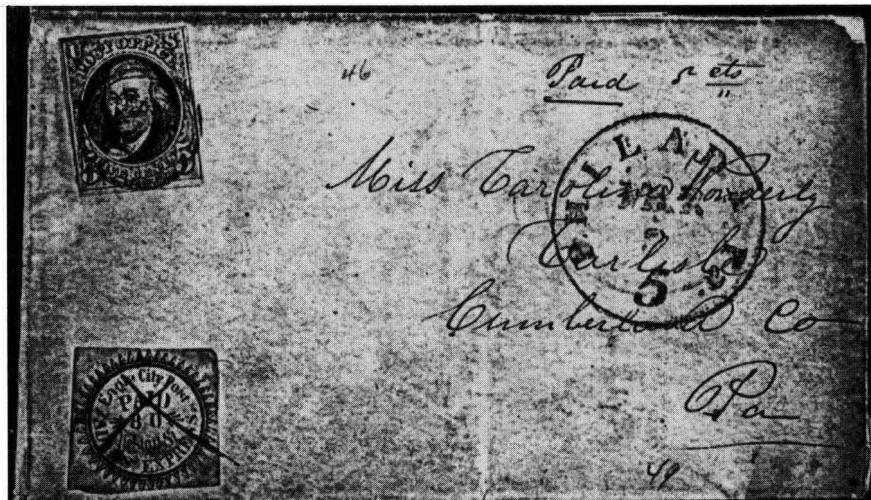 POST OFFICE
FIVE CENTS
46
Paid 5 cts
PHILADA Pa.
5
Miss Carolina
Carlisle
Cumberland Co
Pa
Eagle City Post
PAID
80
EXPRESS
49